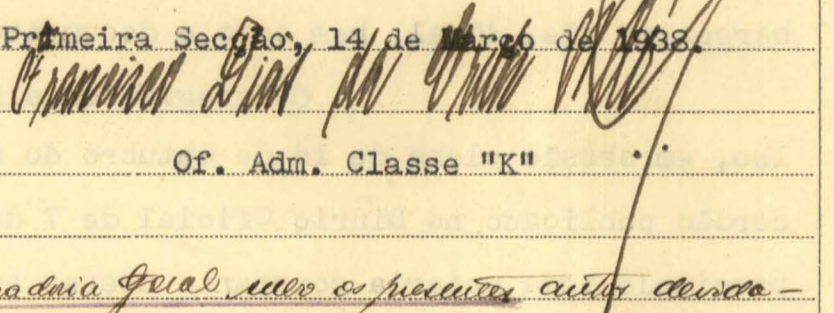 Primeira Secção, 14 de Março de 1938.
Francisco Dias da
Of. Adm. Classe "K"
geral os presentes autos devida-